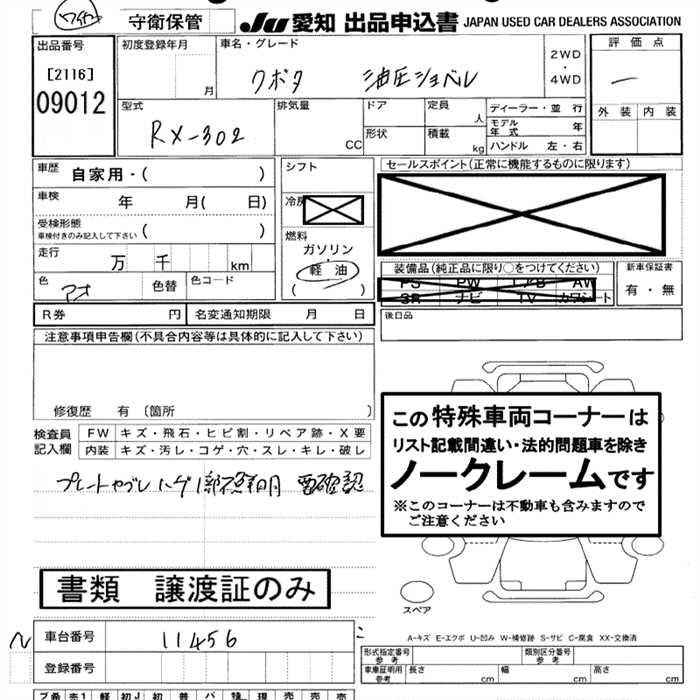 ワイヤ
守衛保管
JU 愛知 出品申込書 JAPAN USED CAR DEALERS ASSOCIATION
出品番号
[2116]
09012
初度登録年月
月
車名・グレード
クボタ 油圧ショベル
2WD
・
4WD
評価点
一
外装 内装
型式
RX-302
排気量
CC
ドア
形状
定員
人
積載
kg
ディーラー・並 行
モデル年式 年
ハンドル 左・右
車歴
自家用・( )
車検 年 月( 日)
受検形態
車検付きのみ記入して下さい ( )
走行
万 千 km
色
アオ
色替
色コード
シフト
冷房
燃料
ガソリン・
軽油
( )
セールスポイント(正常に機能するものに限ります)
装備品(純正品に限り○をつけてください)
PS PW エアB AW
SR ナビ TV カワシート
新車保証書
有・無
後日品
R券 円
名変通知期限 月 日
注意事項申告欄(不具合内容等は具体的に記入して下さい)
修復歴 有 〔箇所 〕
検査員
記入欄
FW キズ・飛石・ヒビ割・リペア跡・X要
内装 キズ・汚レ・コゲ・穴・スレ・キレ・破レ
この特殊車両コーナーは
リスト記載間違い・法的問題車を除き
ノークレームです
※このコーナーは不動車も含みますので
ご注意ください
プレートヤブレ ハゲ 1部不鮮明 要確認
書類 譲渡証のみ
スペア
車台番号
11456
登録番号
A-キズ E-エクボ U-凹み W-補修跡 S-サビ C-腐食 XX-交換済
形式指定番号
参考
類別区分番号
参考
車庫証明用
参考
長さ cm 幅 cm 高さ cm